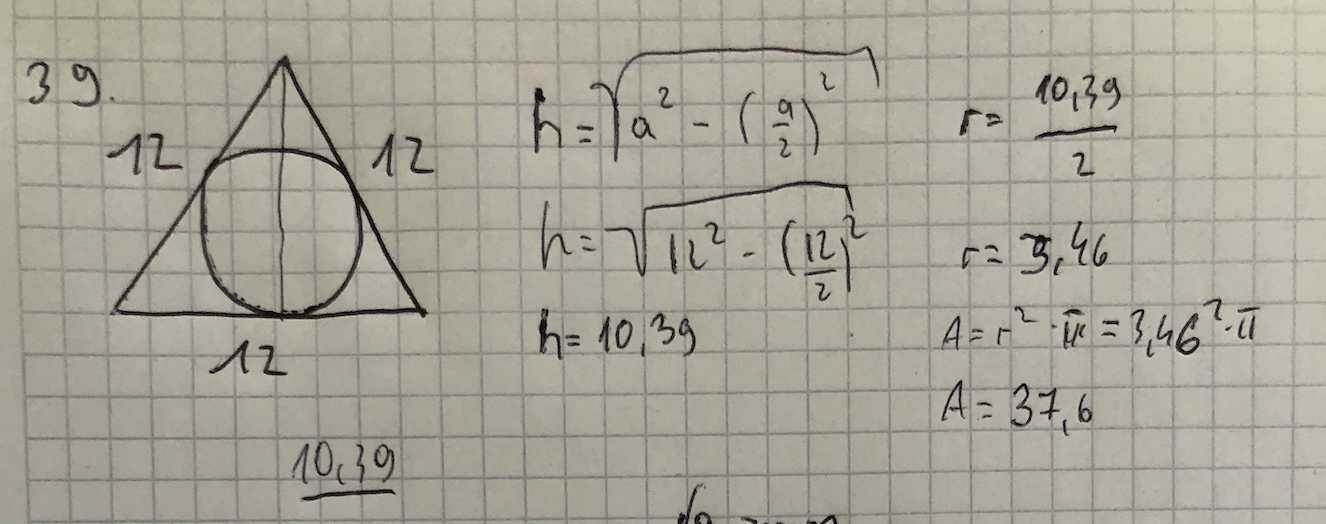 39.
12
12
12
10,39
h = √a² - (a/2)²
h = √12² - (12/2)²
h = 10,39
r = 10,39/2
r = 3,46
A = r² · π = 3,46² · π
A = 37,6